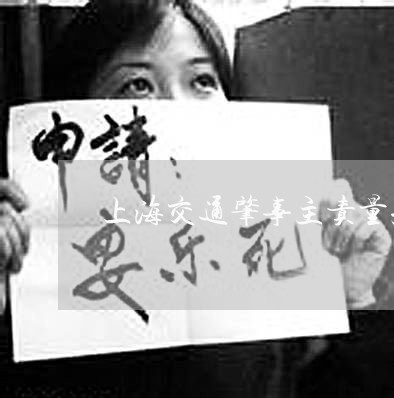 申請：
上海交通肇事主责量
安乐死